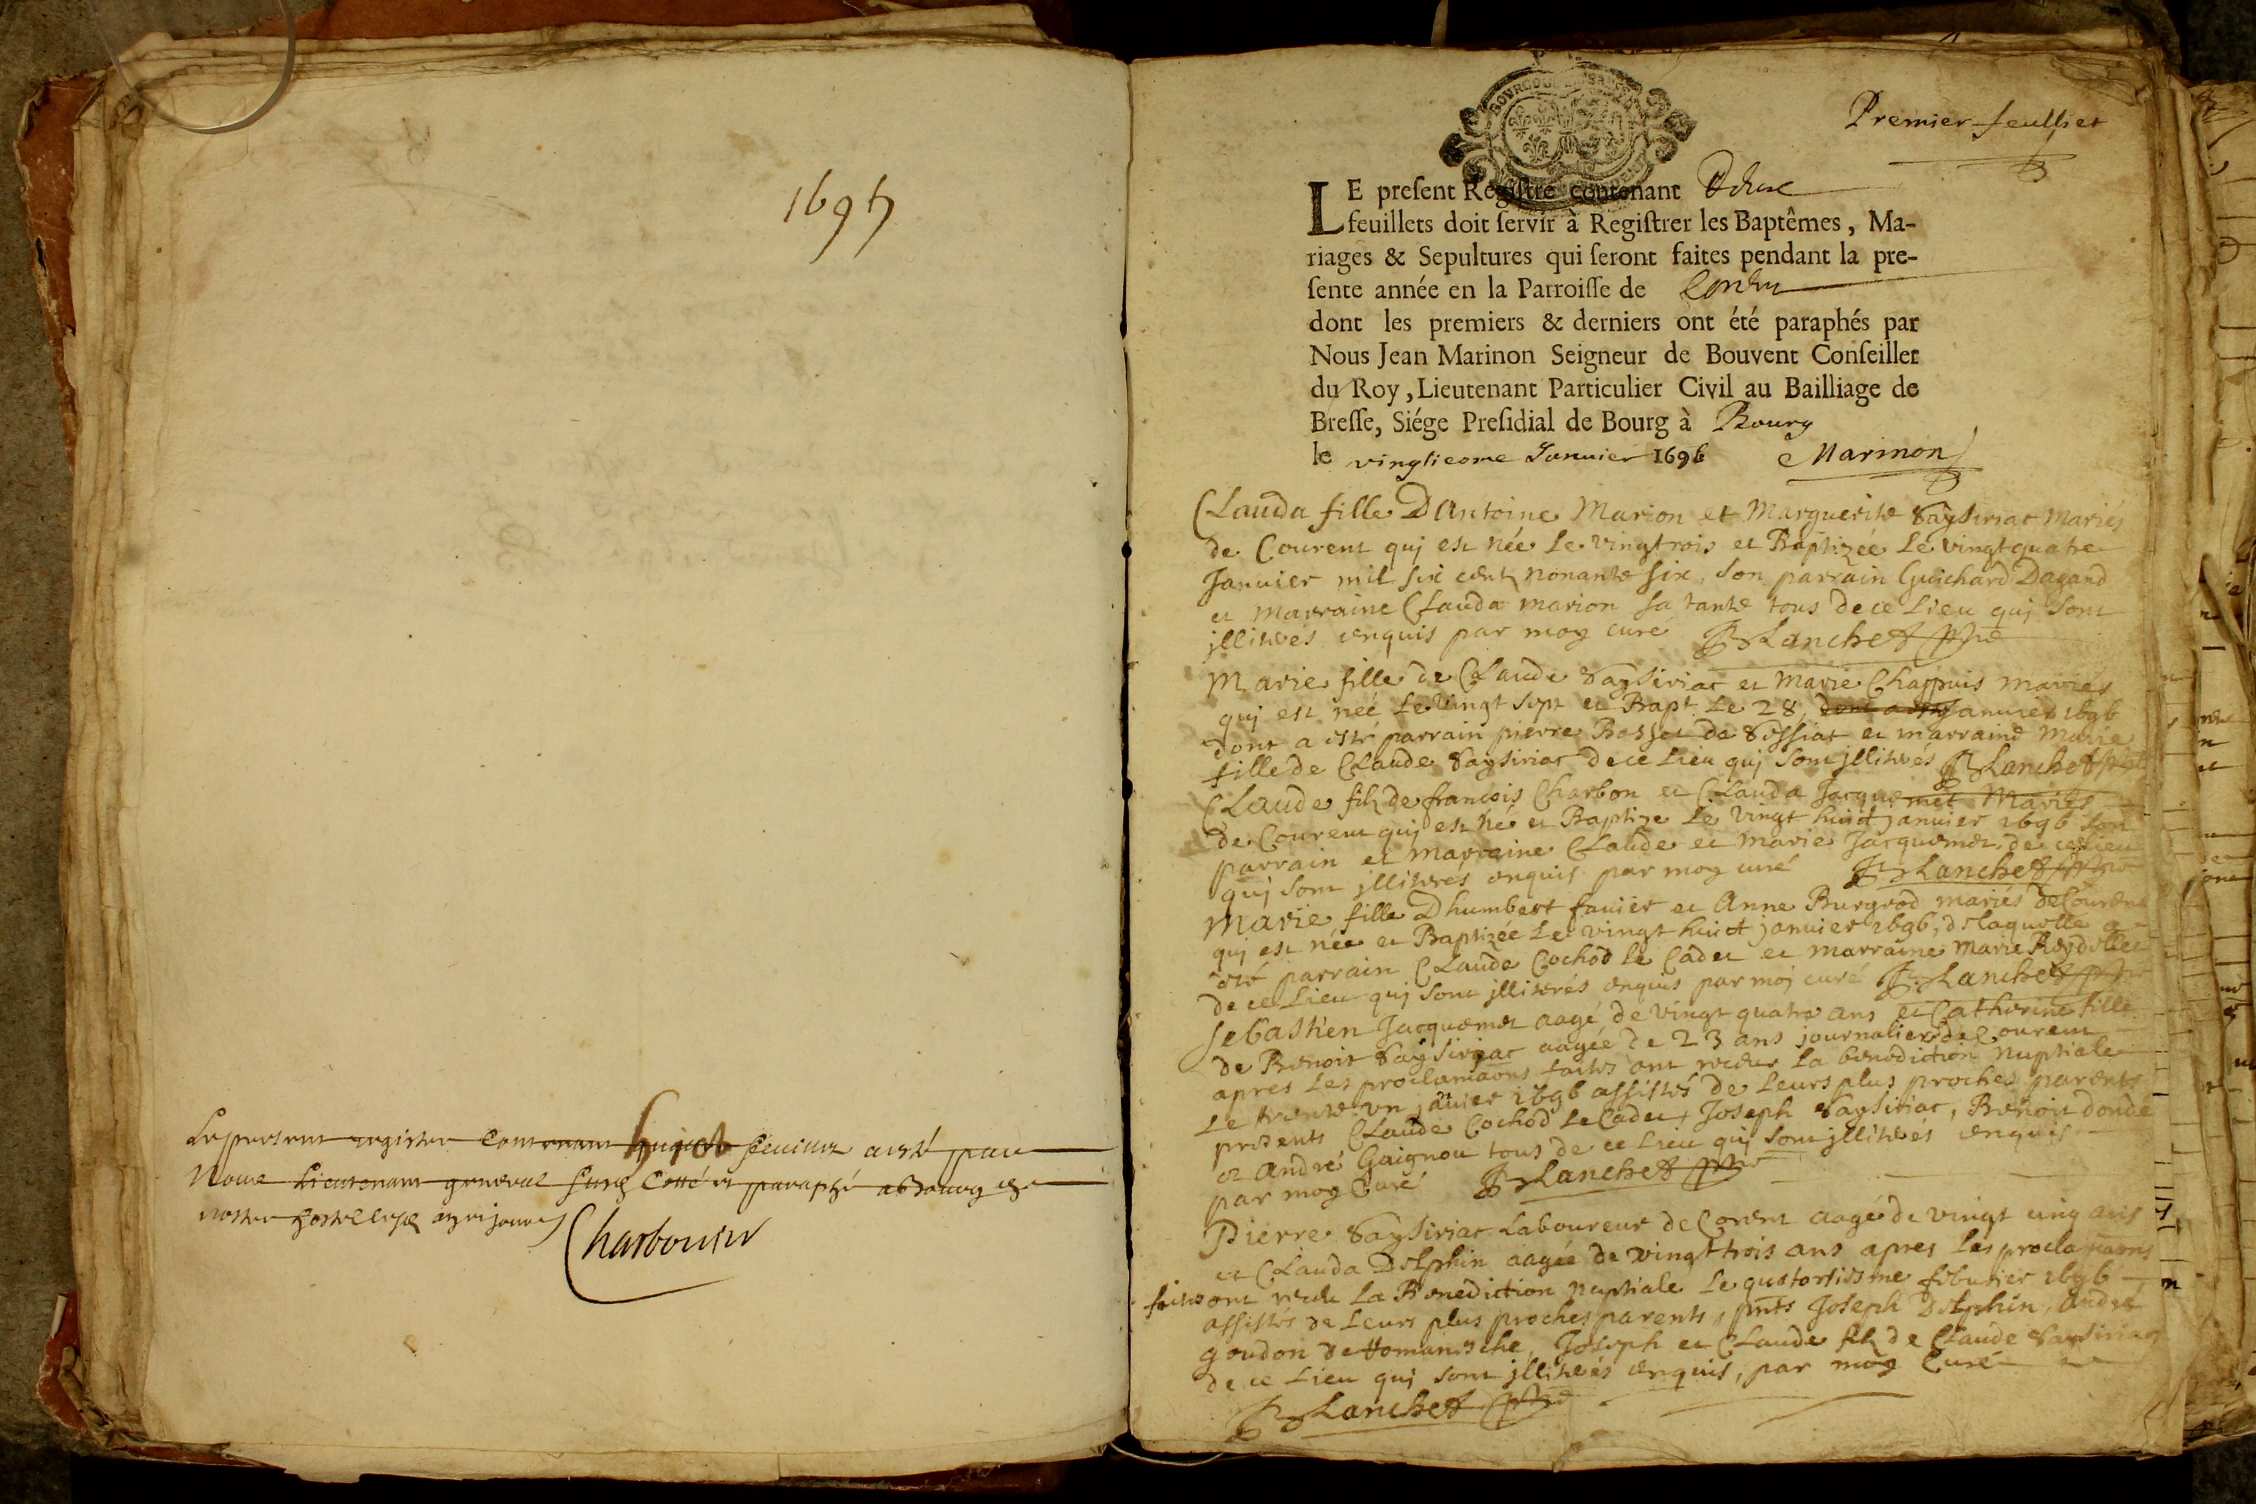 1695
Le present registre contenant huict feuillets a esté par
Nous Lieutenant general cotté et paraphé a Bourg
nostre hostel
Charbonier
Premier feulliet
LE preſent Regiſtre contenant
feuillets doit ſervir à Regiſtrer les Baptêmes, Ma-
riages & Sepultures qui ſeront faites pendant la pre-
ſente année en la Parroiſſe de
dont les premiers & derniers ont été paraphés par
Nous Jean Marinon Seigneur de Bouvent Conſeiller
du Roy, Lieutenant Particulier Civil au Bailliage de
Breſſe, Siége Preſidial de Bourg à Bourg
le vingtieme Janvier 1696 Marinon
Clauda fille D Antoine Marion et Marguerite Saysiriat Mariés
de Courent qui est née le vingtrois et Baptizée le vingtquatre
Janvier mil six cent nonante six, son parrain Guichard Dagand
et marraine Clauda marion sa tante tous de ce Lieu qui sont
jllitérés enquis par moy curé J Blanchet
Marie fille de Claude Saysiriat et Marie Chappuis mariés
qui est née le vingt sept et Bapt. le 28 janvier 1696
dont a esté parrain pierre Bosset de et marraine Marie
fille de Claude Saysiriat de ce Lieu qui sont jllitérés J Blanchet
Claude filz de francois Charbon et Clauda Jacquemet Mariés
de Courent qui est né et Baptize le vingt huict janvier 1696 son
parrain et marraine Claude et marie Jacquemet, de ce Lieu
qui sont jllitérés enquis par moy curé J Blanchet
Marie fille Dhumbert favier et Anne Burgod mariés de Courent
qui est née et Baptizée le vingt huict janvier 1696, de laquelle a
esté parrain Claude Cochod le Cadet et marraine marie Reydellet
de ce Lieu qui sont jllitérés enquis par moi curé J Blanchet
Sebastien Jacquemet aagé de vingt quatre ans et Catherine fille
de Benoit Saysiriat aagée de 23 ans journaliers de Courent
apres les proclamaons faites ont receus la benediction nuptiale
Le trente un janvier 1696 assistés de Leurs plus proches parents
presents Claude Cochod le Cadet, Joseph Saysiriat, Benoit donde
et andré Gaignou tous de ce Lieu qui sont jllitérés enquis
par moy Curé J Blanchet
Pierre Saysiriat Laboureur de Corent aagé de vingt cinq ans
et Clauda Delphin aagée de vingt trois ans apres les proclamaons
faites ont receu la Benediction nuptiale le quatorsiesme febvrier 1696
assistés de Leurs plus proches parents, pnts Joseph Delphin, andré
goudon de Romanesche, Joseph et Claude filz de Claude Saysiriat
de ce Lieu qui sont jllitérés enquis, par moy Curé
J Blanchet